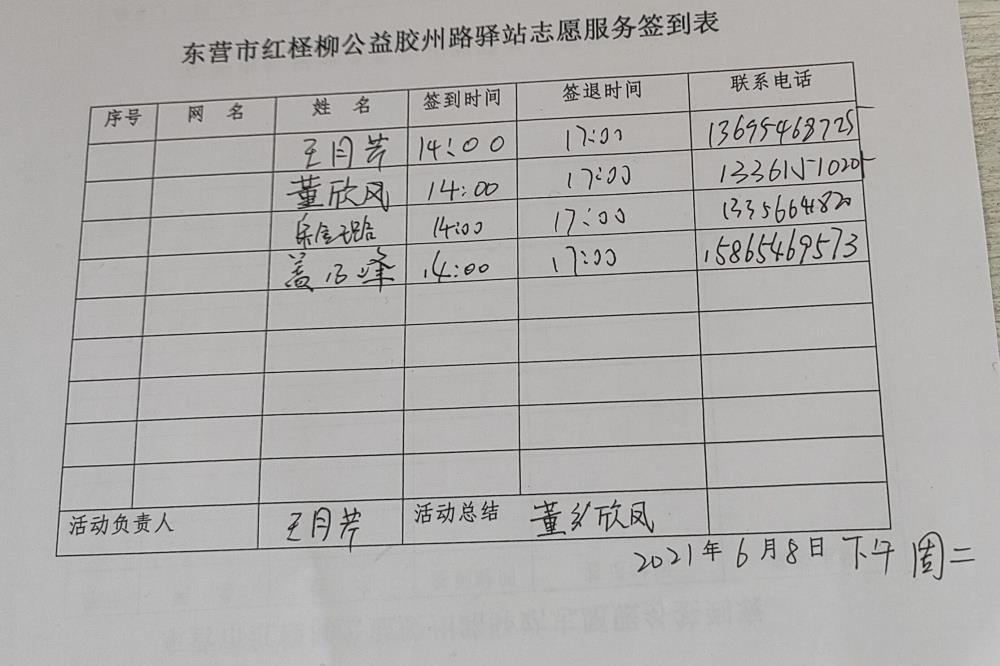 东营市红柽柳公益胶州路驿站志愿服务签到表
序号 网 名 姓 名 签到时间 签退时间 联系电话
王月芹 14:00 17:00 13695468725
董欣凤 14:00 17:00 13361511020
14:00 17:00
14:00 17:00 15865469573
活动负责人 王月芹 活动总结 董欣凤
2021年6月8日 下午 周二